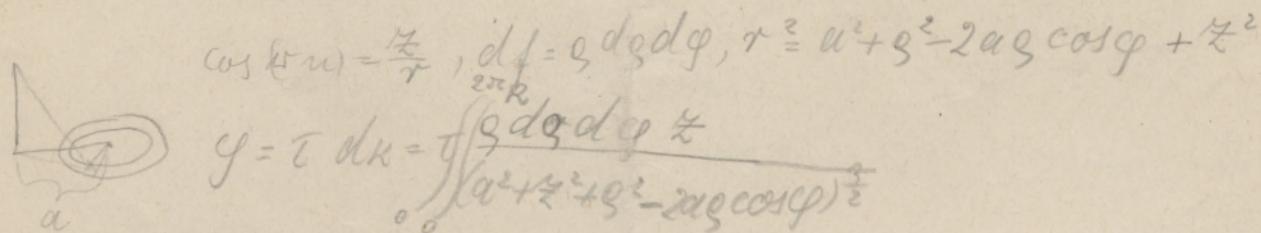 cos(r n) = z/r , df = ϱ dϱ dφ, r² = a² + ϱ² - 2aϱ cosφ + z²
φ = τ dk = τ ∫₀^2π ∫₀^R ϱ dϱ dφ z / (a² + z² + ϱ² - 2aϱ cosφ)^3/2
a